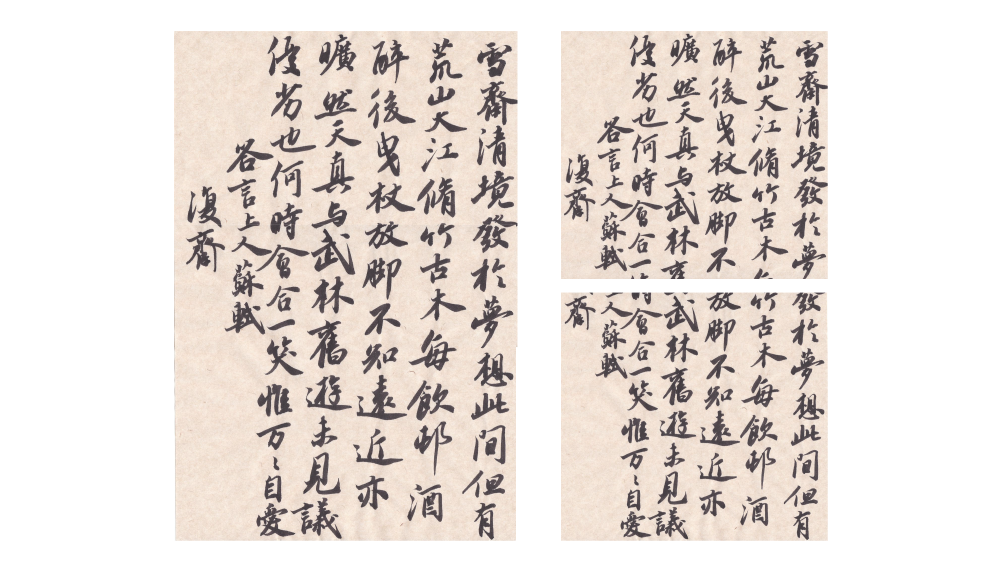 雪齋清境發於夢想此間但有
荒山大江脩竹古木每飲邨酒
醉後曳杖放脚不知遠近亦
曠然天真与武林舊遊未見議
優劣也何時會合一笑惟万〻自愛
答言上人蘇軾
復齋
雪齋清境發於夢
荒山大江脩竹古木
醉後曳杖放脚不
曠然天真与武林舊
優劣也何時會合一
答言上人蘇軾
復齋
發於夢想此間但有
竹古木每飲邨酒
放脚不知遠近亦
武林舊遊未見議
時會合一笑惟万〻自愛
人蘇軾
齋